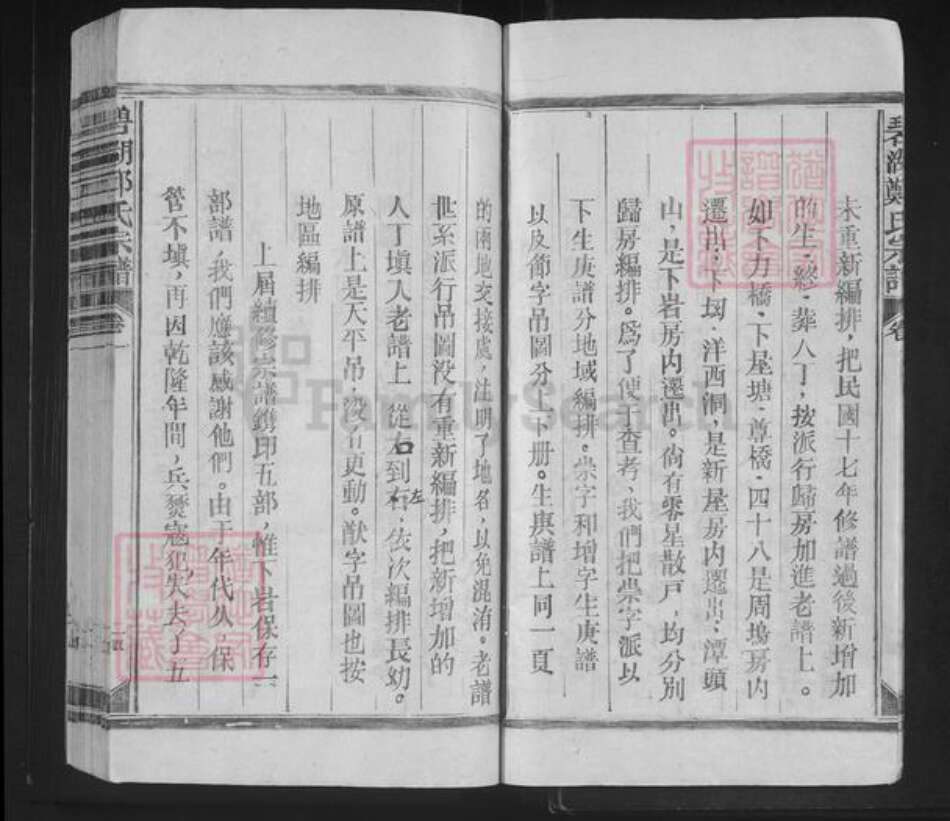 碧湖鄭氏宗譜 卷
未重新編排，把民國十七年修譜過後新增加
的生、終、葬人丁，按派行歸房加進老譜上。
如下力橋、下屋塘、尊橋、四十八是周塢房内
遷出；下㘭、洋西洞，是新屋房内遷出；潭頭
山，是下岩房内遷出。尙有零星散戶，均分别
歸房編排。爲了便于查考，我們把崇字派以
下生庚譜分地域編排。崇字和增字生庚譜
以及節字吊圖分上下册。生庚譜上同一頁
的兩地交接處，注明了地名，以免混淆。老譜
世系派行吊圖没有重新編排，把新增加的
人丁填入老譜上，從右到左，依次編排長幼。
原譜上是天平吊，没有更動。猷字吊圖也按
地區編排
上屆續修宗譜鐫印五部，惟下岩保存一
部譜，我們應該感謝他們。由于年代久，保
管不塡，再因乾隆年間，兵燹寇犯，失去了五
碧湖鄭氏宗譜 卷
FamilySearch